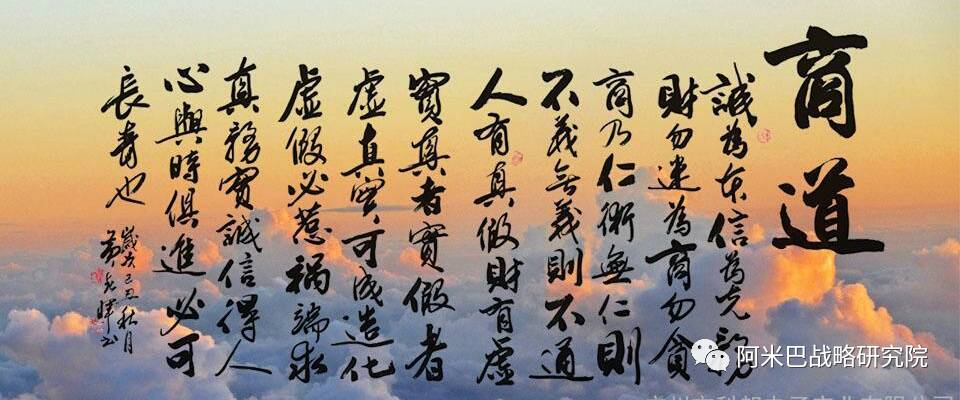 商道
誠為本信為先
財勿迷為商勿貪
商乃仁術無仁則
不義無義則不通
人有真假財有虛
實真者實假者
虛真實可成造化
虛假必惹禍端求
真務實誠信得人
心與時俱進必可
長壽也
歲次己丑秋月
阿米巴战略研究院